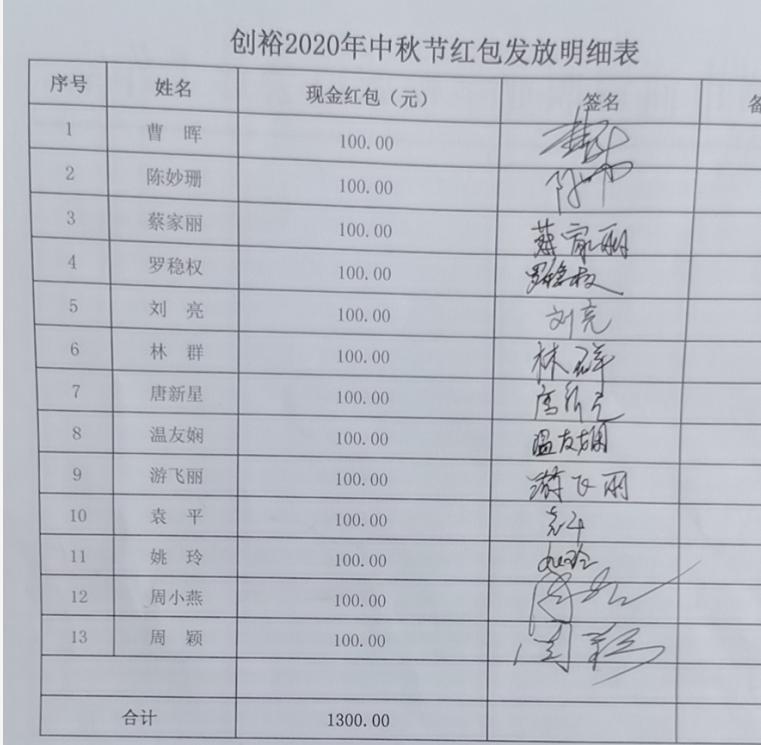 创裕2020年中秋节红包发放明细表
序号 姓名 现金红包（元） 签名 备
1 曹 晖 100.00
2 陈妙珊 100.00
3 蔡家丽 100.00 蔡家丽
4 罗稳权 100.00 罗稳权
5 刘 亮 100.00 刘亮
6 林 群 100.00 林群
7 唐新星 100.00
8 温友娴 100.00 温友娴
9 游飞丽 100.00 游飞丽
10 袁 平 100.00
11 姚 玲 100.00 姚玲
12 周小燕 100.00
13 周 颖 100.00 周颖
合计 1300.00